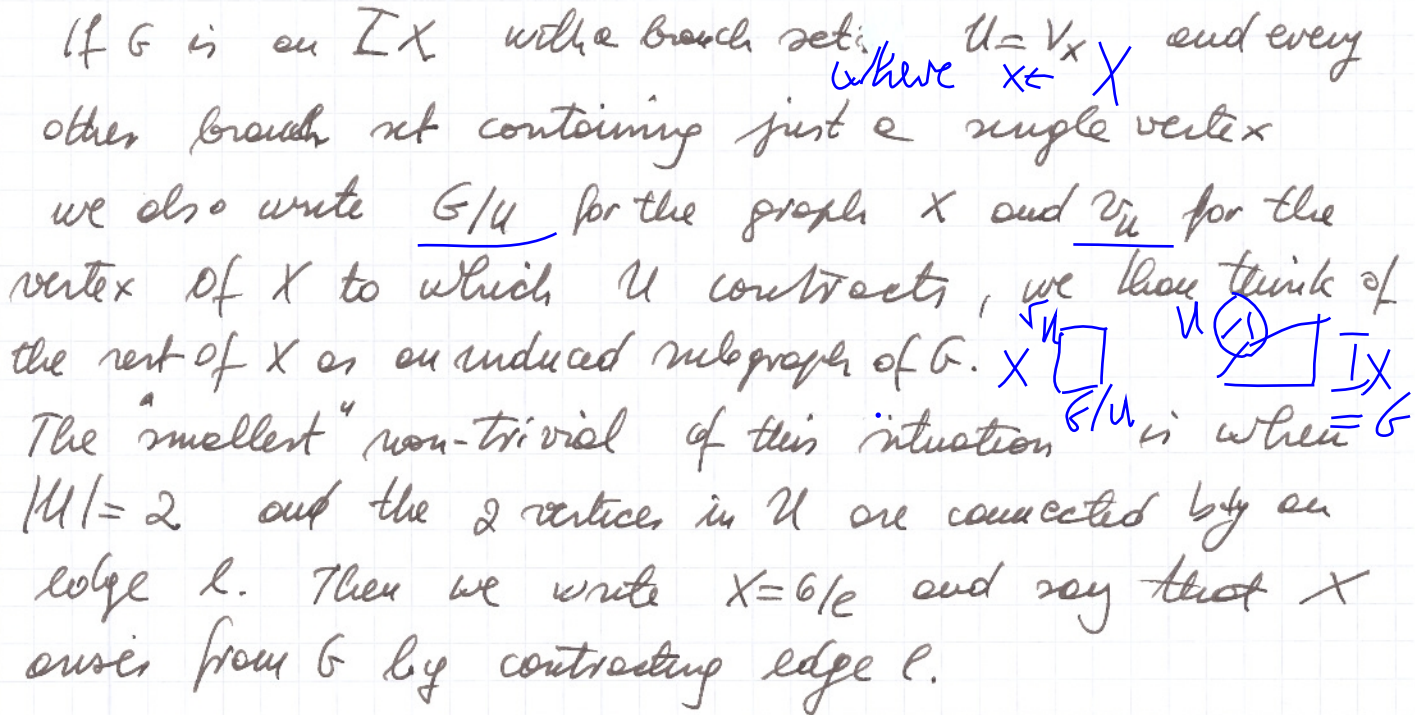 If G is an IX with a branch set: U = Vx and every
where x ∈ X
other branch set containing just a single vertex
we also write G/U for the graph X and v_U for the
vertex of X to which U contracts, we then think of
the rest of X as an induced subgraph of G.
X v_U G/U
U IX = G
The "smallest" non-trivial of this situation is when
|U| = 2 and the 2 vertices in U are connected by an
edge e. Then we write X = G/e and say that X
arises from G by contracting edge e.